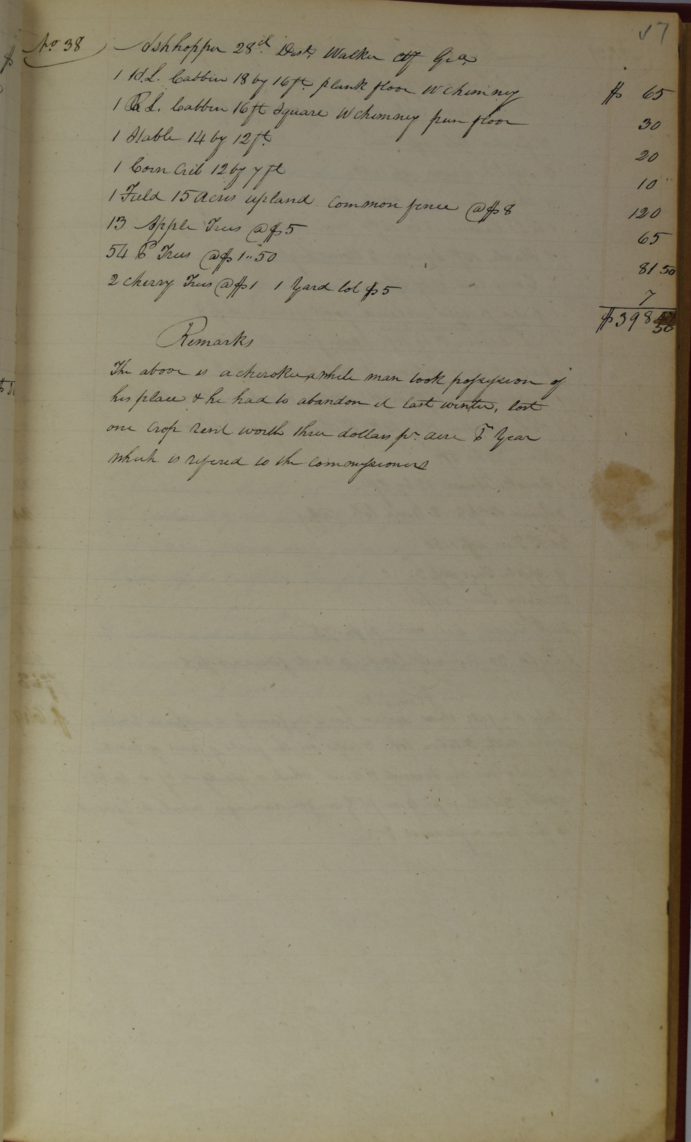 57
No 38 Ashhopper 28th Dist Walker Cty Gea
1 H.L. Cabbin 18 by 16 ft plank floor W chimney $ 65
1 R.L. Cabbin 16 ft Square W chimney pun floor 30
1 Stable 14 by 12 ft 20
1 Corn Crib 12 by 7 ft 10
1 Field 15 Acres upland common fence @ $8 120
13 Apple Trees @ $5 65
54 P Trees @ $1..50 81 50
2 cherry Trees @ $1 1 Yard lot $5 7
$398 50
Remarks
The above is a cherokee, a white man took possession of
his place & he had to abandon it last winter, lost
one crop rent worth three dollars pr acre Pr Year
which is refered to the commissioners